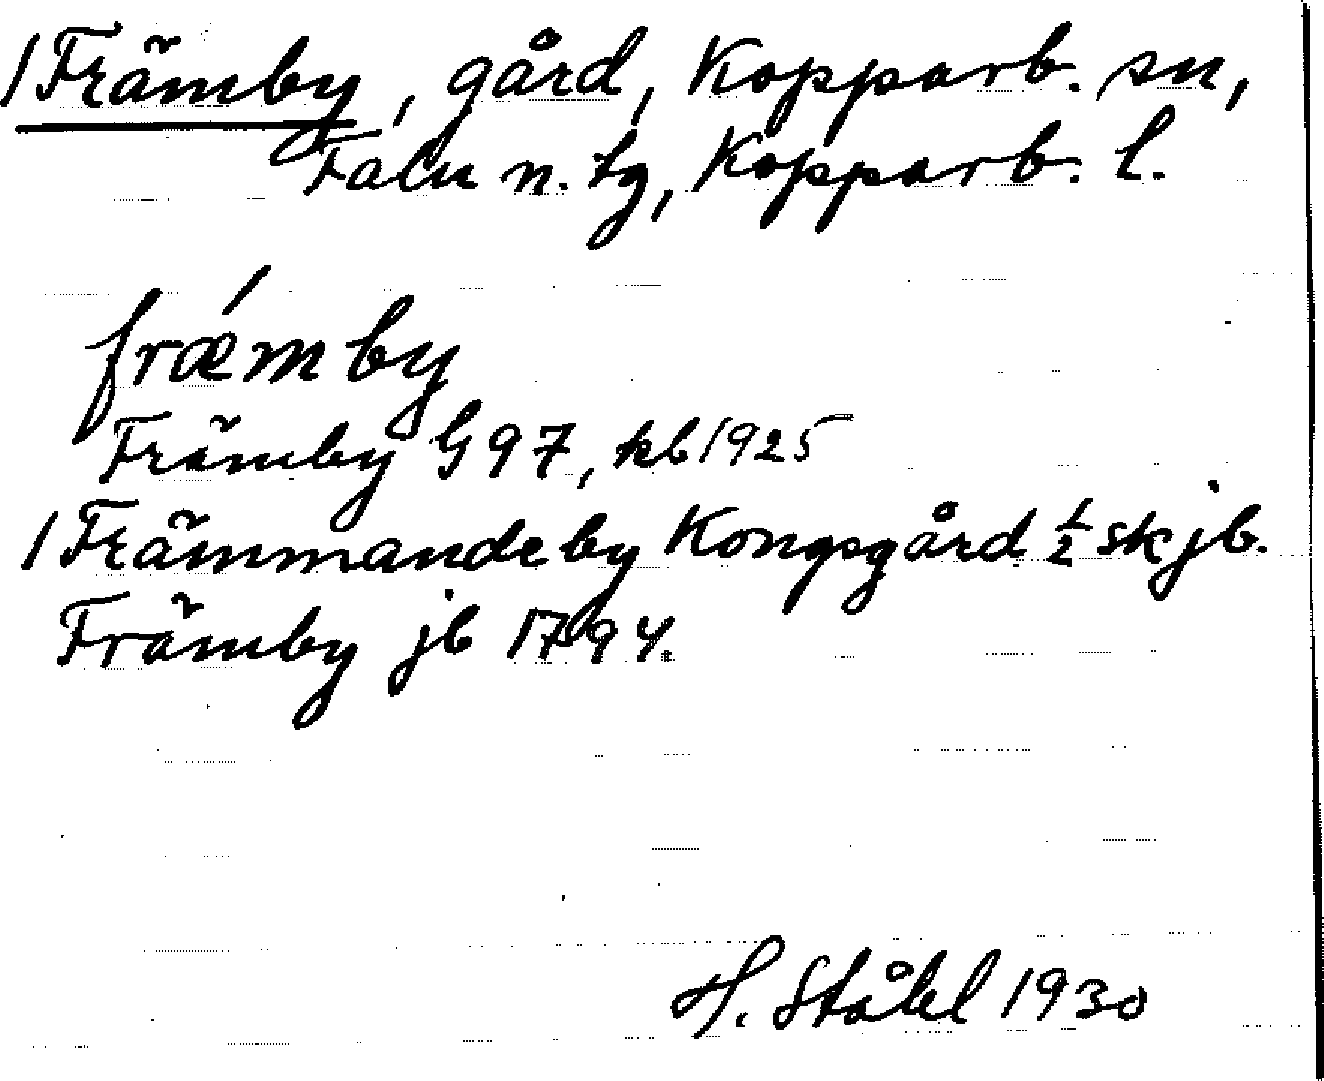 /Främby, gård, Kopparb. sn,
Falu n. tg, Kopparb. l.
fræ´mby
Främby G 97, kb 1925
/Främmandeby Kongsgård ½ sk jb.
Främby jb 1794.
H. Ståhl 1930